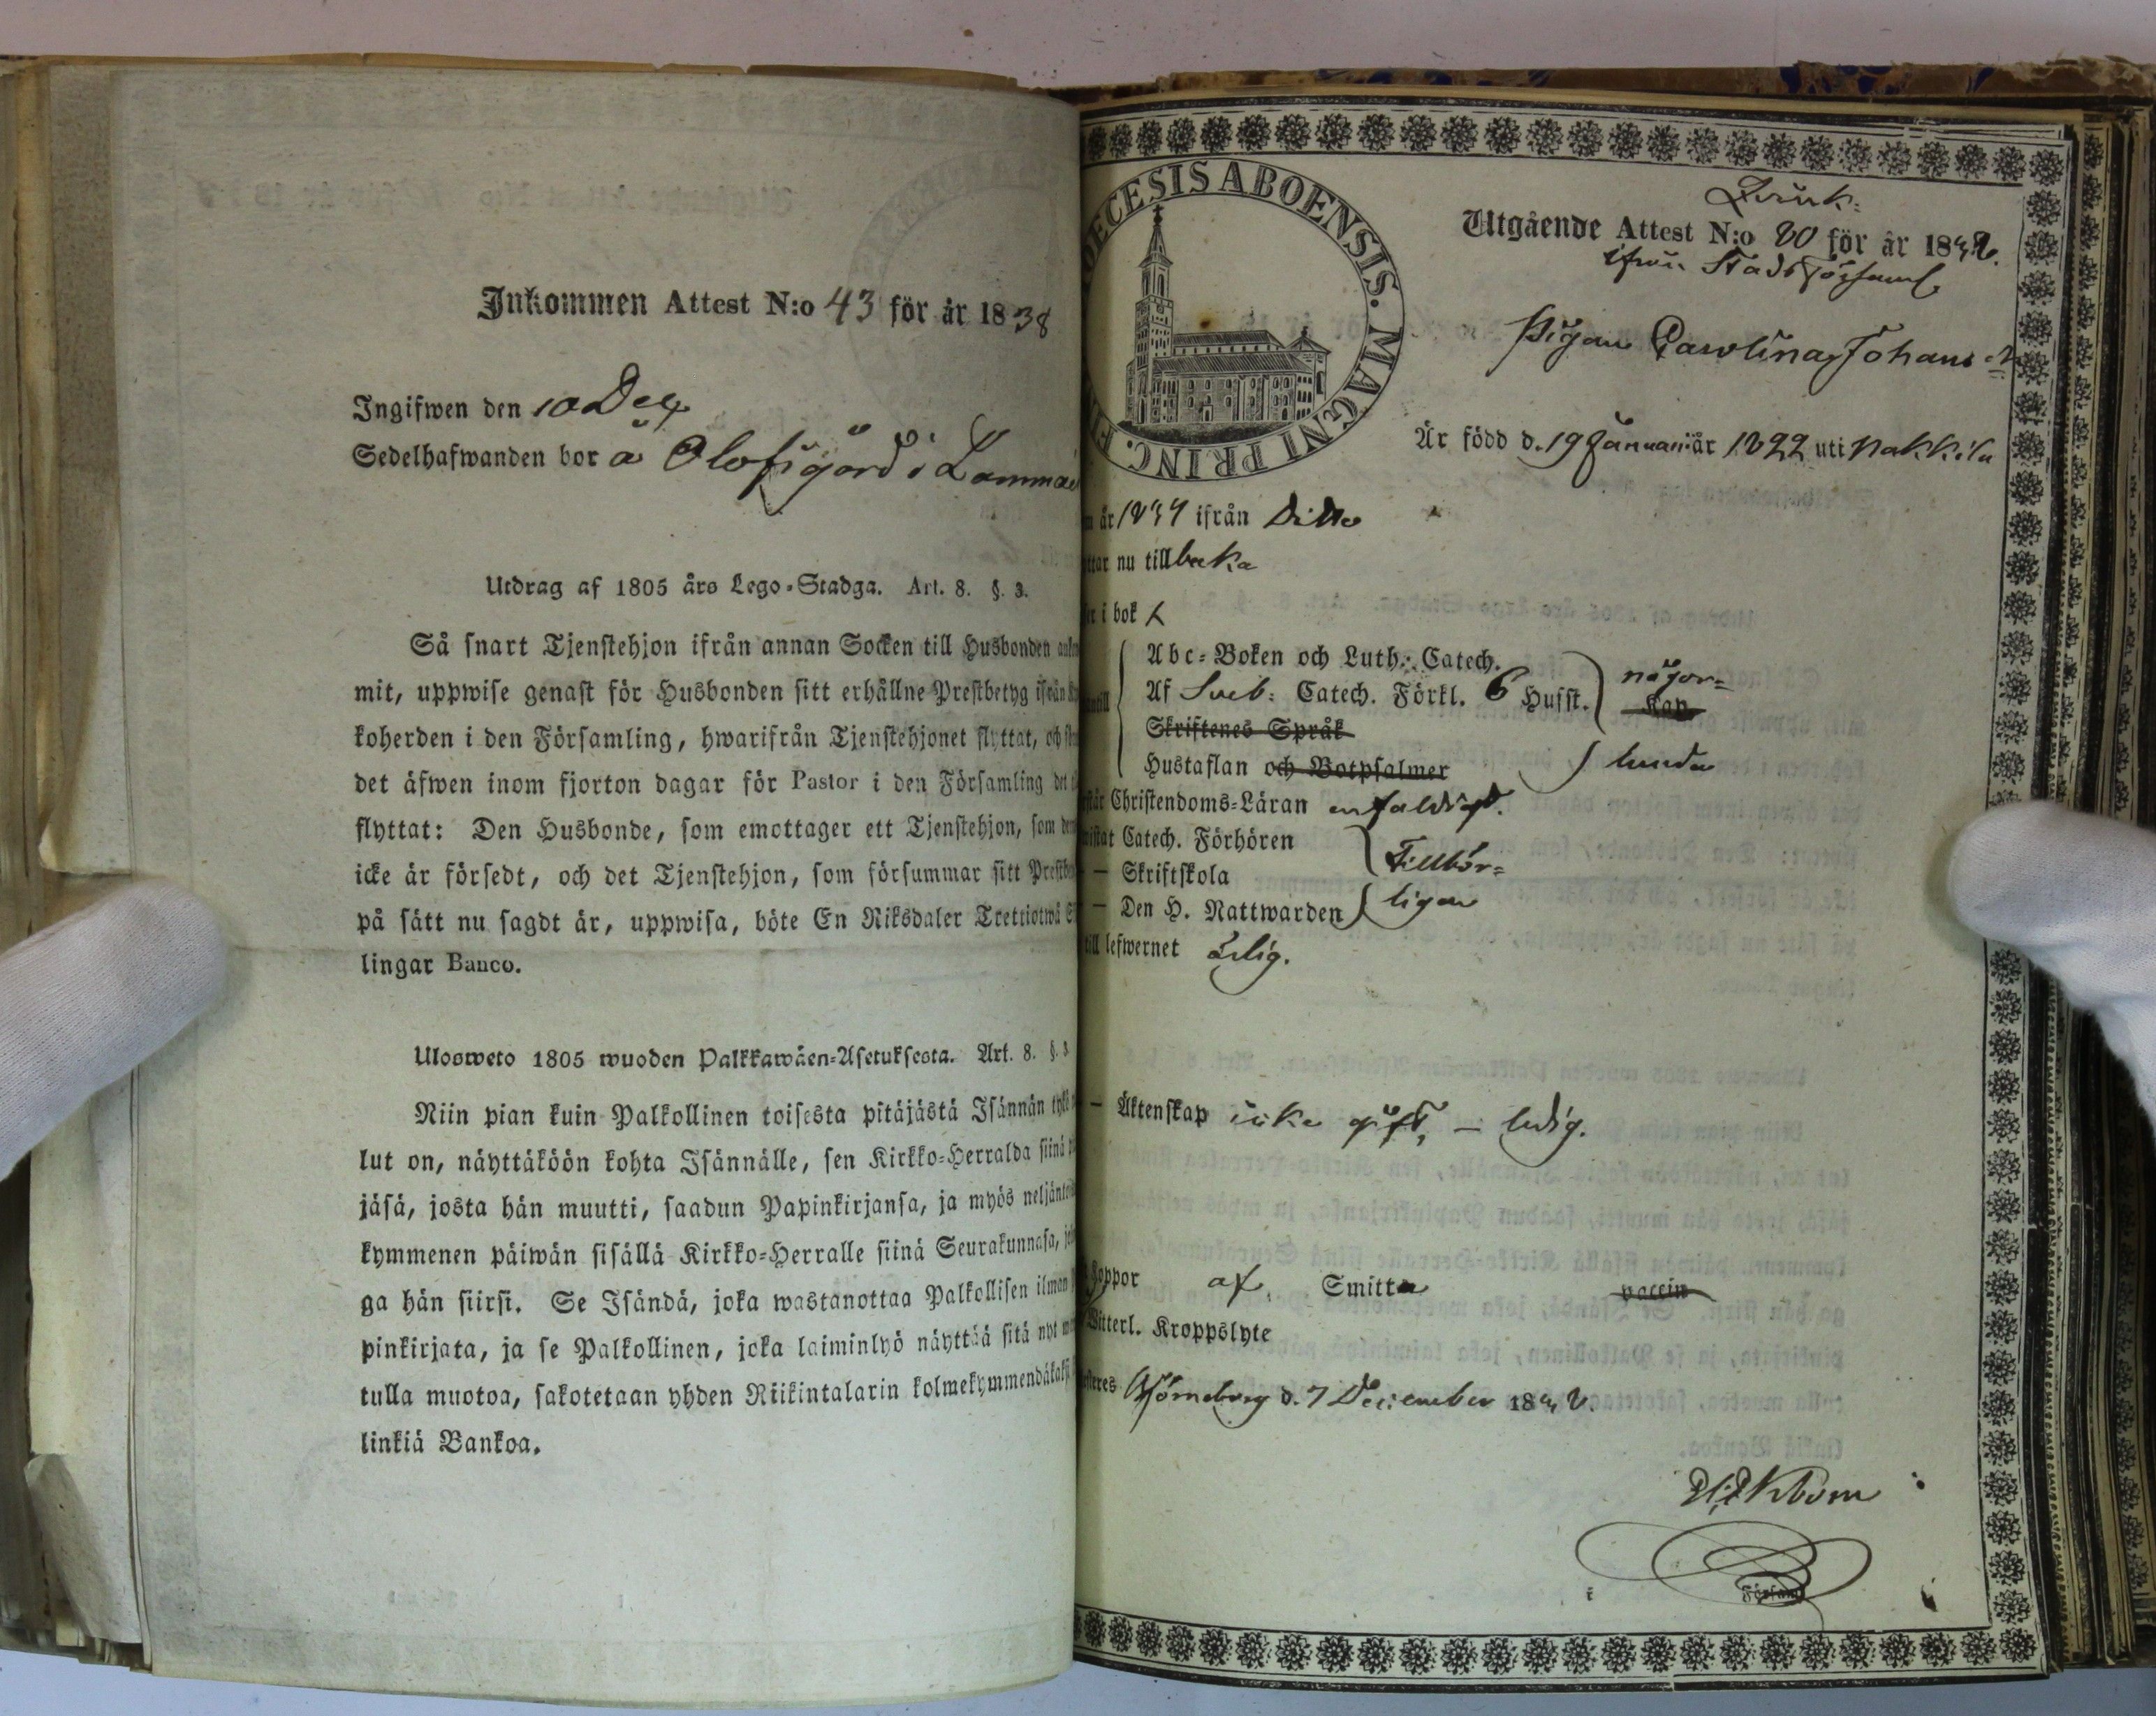 Inkommen Attest N:o 43 för år 1838
Ingifwen den 10 Dec
Sedelhafwanden bor å Olofsgård i
Utdrag af 1805 års Lego-Stadga. Art. 8. §. 3.
Så snart Tjenstehjon ifrån annan Socken till Husbonden
mit, uppwise genast för Husbonden sitt erhållne Prestbetyg ifrån
koherden i den Församling, hwarifrån Tjenstehjonet flyttat, och
det äfwen inom fjorton dagar för Pastor i den Församling det
flyttat: Den Husbonde, som emottager ett Tjenstehjon, som
icke är försedt, och det Tjenstehjon, som försummar sitt
på sätt nu sagdt är, uppwisa, böte En Riksdaler Trettiotwå
lingar Banco.
Ulosweto 1805 wuoden Palkkawäen-Asetuksesta. Art. 8. §. 3
Niin pian kuin Palkollinen toisesta pitäjästä Isännän
lut on, näyttäköön kohta Isännälle, sen Kirkko-Herralda siinä
jäsä, josta hän muutti, saadun Papinkirjansa, ja myös
kymmenen päiwän sisällä Kirkko-Herralle siinä Seurakunnasa,
ga hän siirsi. Se Isändä, joka wastanottaa Palkollisen ilman
pinkirjata, ja se Palkollinen, joka laiminlyö näyttää sitä nyt
tulla muotoa, sakotetaan yhden Riikintalarin
linkiä Bankoa.
DIOECESIS ABOENSIS. MAGNI PRINC. F
Utgående Attest N:o 80 för år 1838.
ifrån Stads Församl
Pigan Carolina Johans
Är född d. 19 Januari år 1822 uti Nakkila
år 1834 ifrån Ditto
nu tillbaka
i bok
Abc-Boken och Luth. Catech.
Af Sveb: Catech. Förkl. 6 Husst. någor=
Kap
Skriftenes Språk
Hustaflan och Botpsalmer lunda
Christendoms-Läran enfaldigt.
Catech. Förhören
— Skriftskola Tillbör=
— Den H. Nattwarden ligen
till lefwernet ärlig.
— Äktenskap icke gift, — ledig.
Koppor af Smitta vaccin
Witterl. Kroppslyte
Björneborg d. 7 December 1838.
i Församl